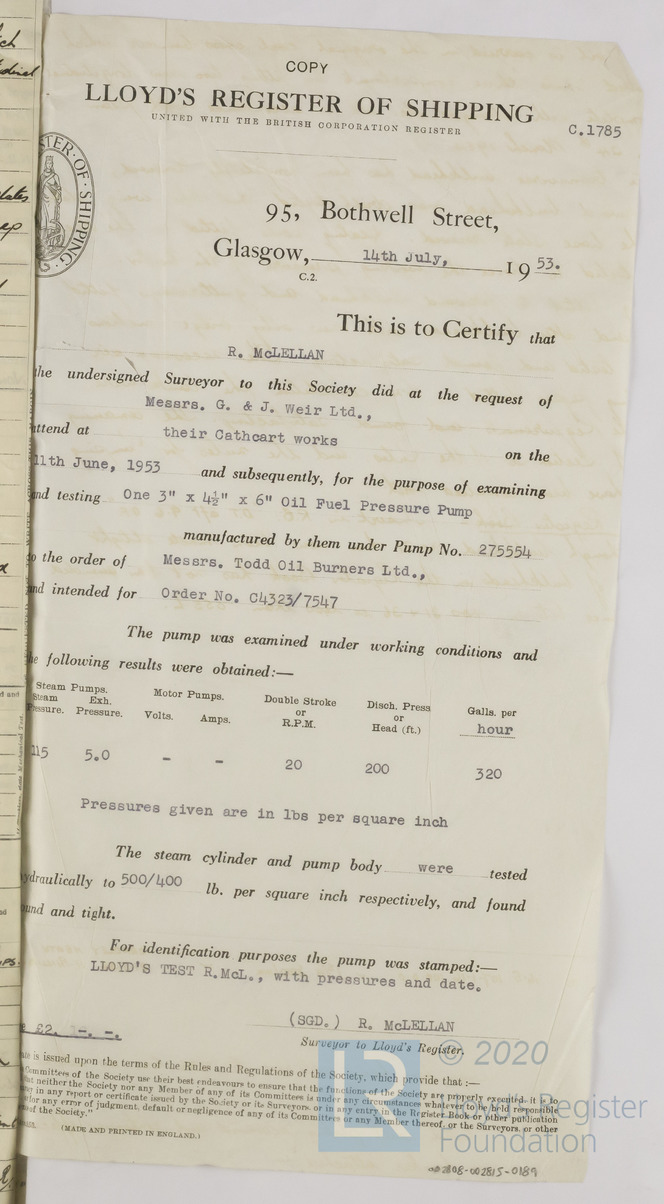 COPY
LLOYD'S REGISTER OF SHIPPING
UNITED WITH THE BRITISH CORPORATION REGISTER
C.1785
STER·OF·SHIPPING·
95, Bothwell Street,
Glasgow, 14th July, 1953.
C.2.
This is to Certify that
R. McLELLAN
the undersigned Surveyor to this Society did at the request of
Messrs. G. & J. Weir Ltd.,
attend at their Cathcart works on the
11th June, 1953 and subsequently, for the purpose of examining
and testing One 3" x 4½" x 6" Oil Fuel Pressure Pump
manufactured by them under Pump No. 275554
o the order of Messrs. Todd Oil Burners Ltd.,
and intended for Order No. C4323/7547
The pump was examined under working conditions and
he following results were obtained:—
Steam Pumps. Motor Pumps. Double Stroke or R.P.M. Disch. Press or Head (ft.) Galls. per hour
Steam Pressure. Exh. Pressure. Volts. Amps.
115 5.0 - - 20 200 320
Pressures given are in lbs per square inch
The steam cylinder and pump body were tested
ydraulically to 500/400 lb. per square inch respectively, and found
und and tight.
For identification purposes the pump was stamped:—
LLOYD'S TEST R.McL., with pressures and date.
(SGD.) R. McLELLAN
Surveyor to Lloyd's Register.
£2. -. -.
ate is issued upon the terms of the Rules and Regulations of the Society, which provide that :—
Committees of the Society use their best endeavours to ensure that the functions of the Society are properly executed, it is to
that neither the Society nor any Member of any of its Committees is under any circumstances whatever to be held responsible
any in any report or certificate issued by the Society or its Surveyors, or in any entry in the Register Book or other publication
for any error of judgment, default or negligence of any of its Committees or any Member thereof, or the Surveyors, or other
of the Society."
(MADE AND PRINTED IN ENGLAND.)
© 2020
LR
Lloyd's Register
Foundation
002808-002815-0189